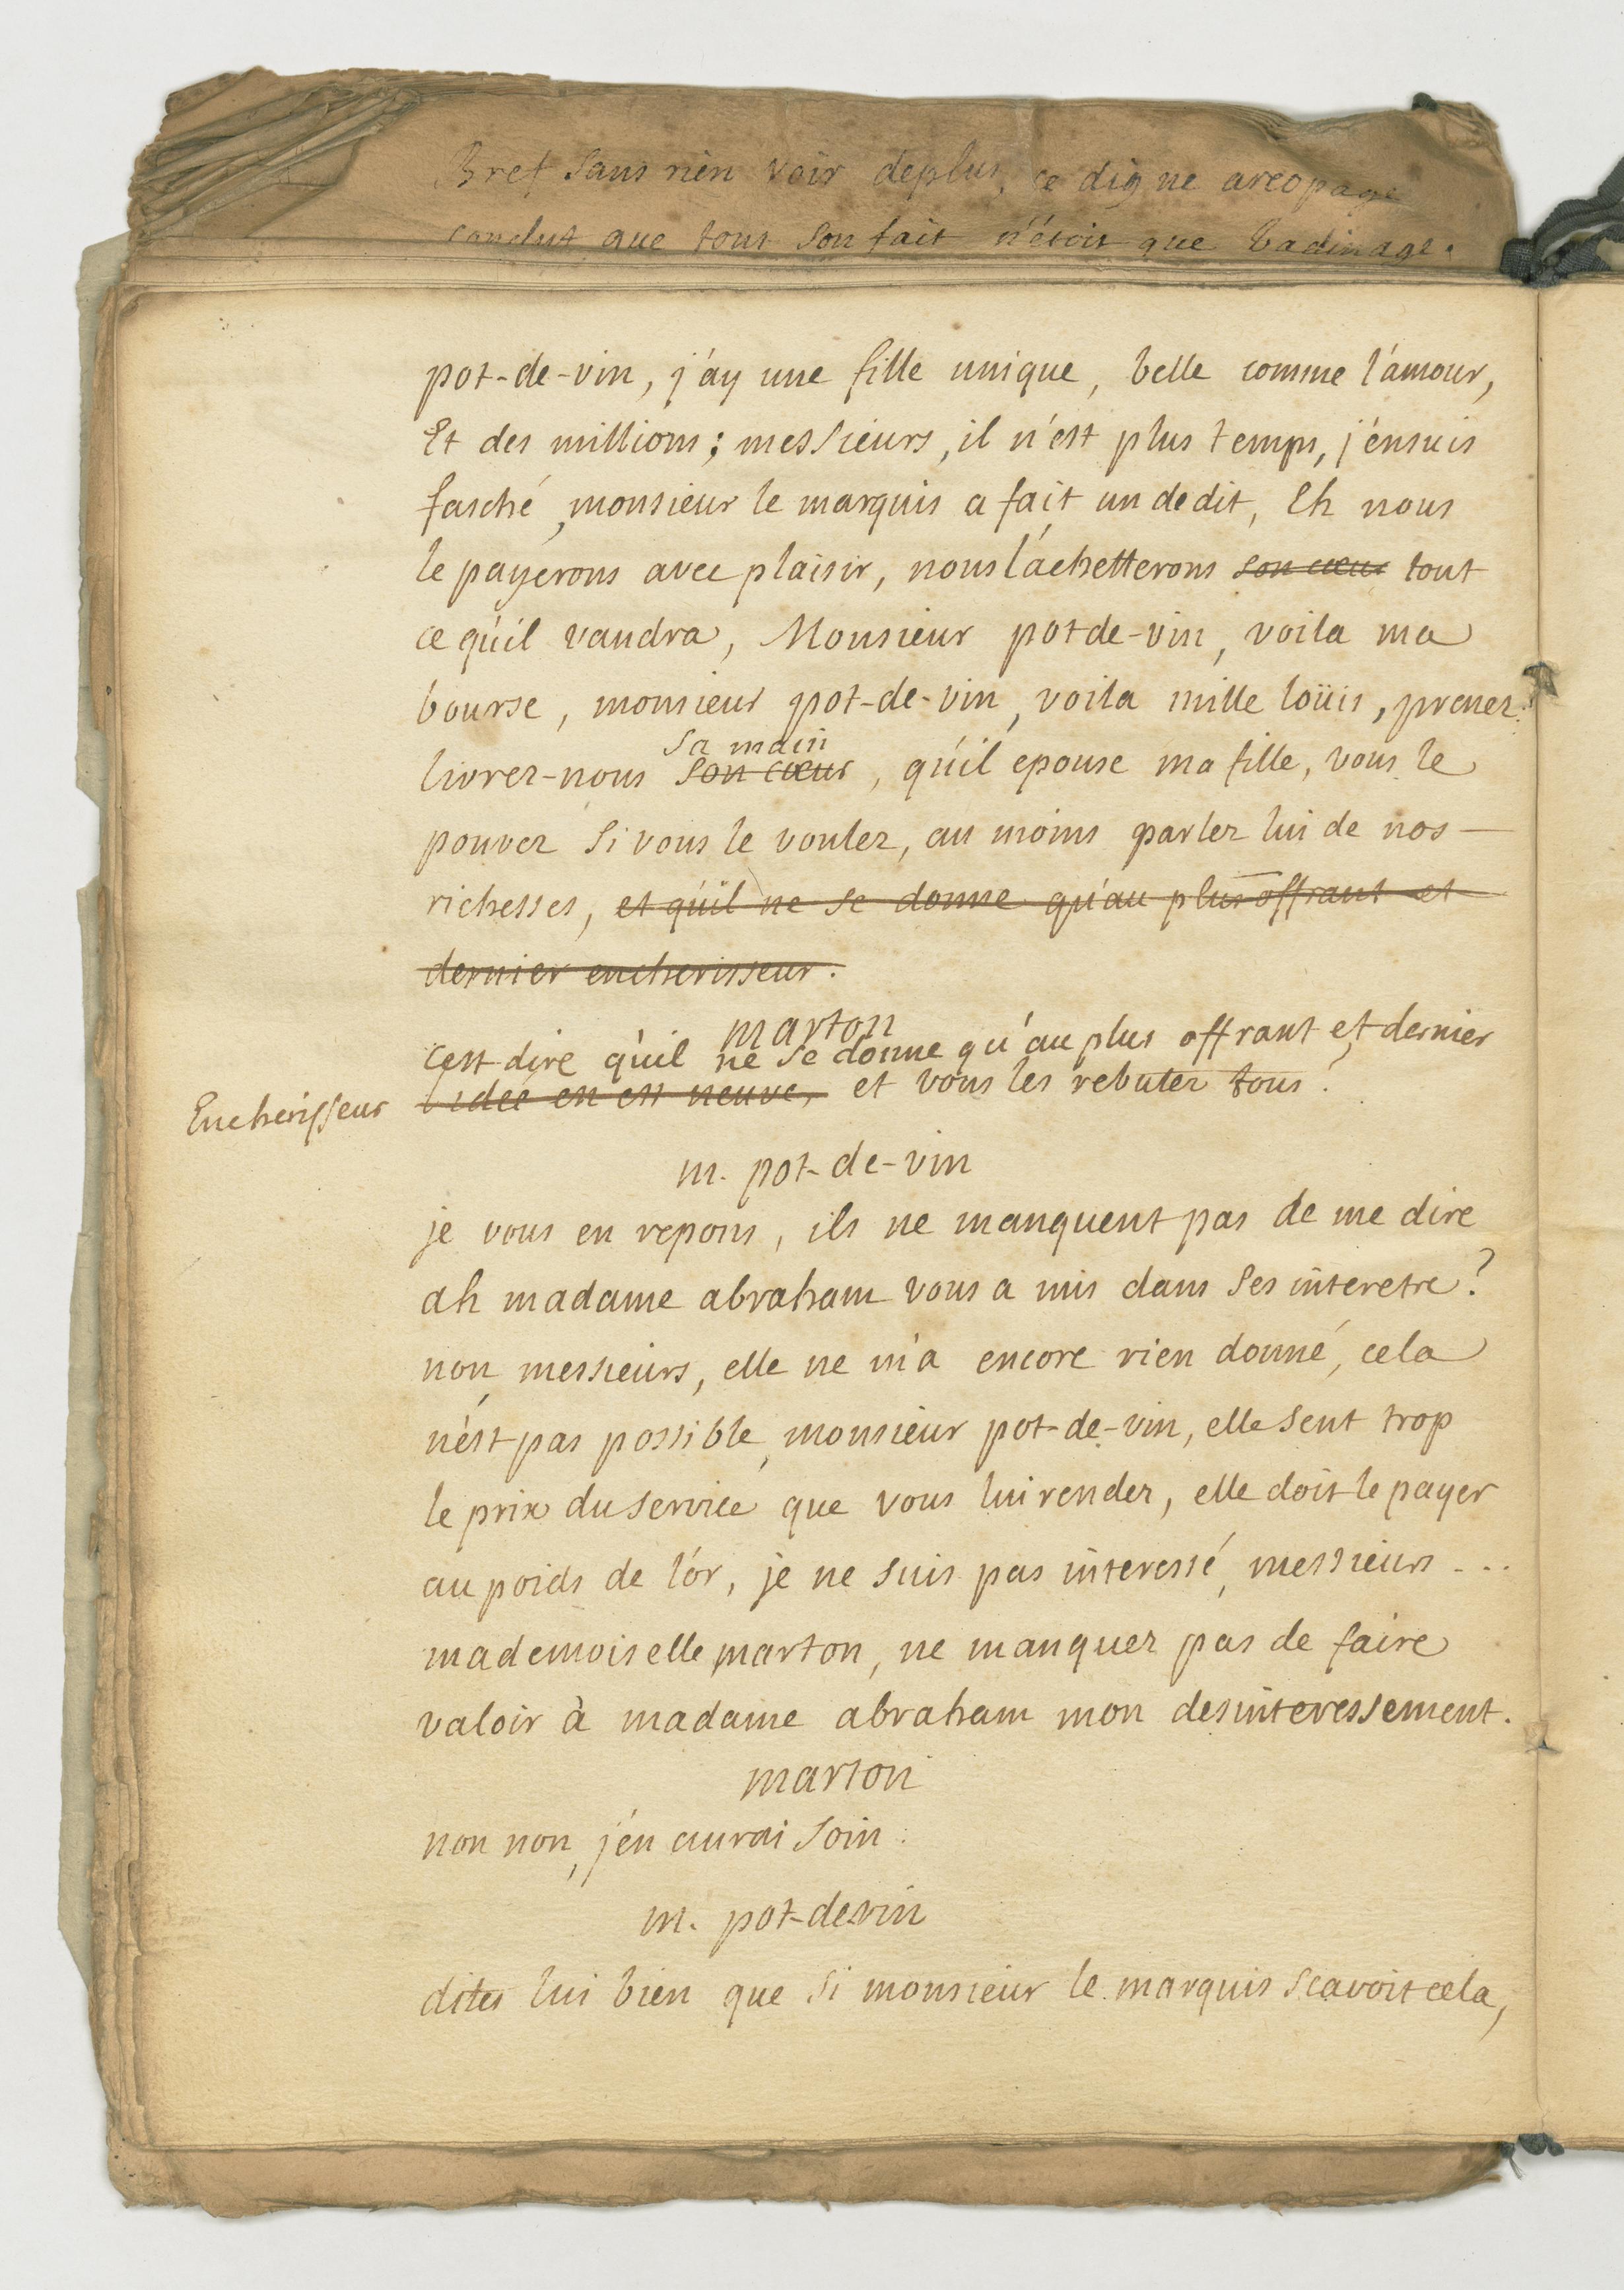 Bref sans rien voir deplus, ce digne areopage
conclut que tout son fait n'étoit que badinage.
pot-de-vin, j'áy une fille unique, belle comme l'ámour,
Et des millions; messieurs, il n'est plus temps, j'énsuis
fasché, monsieur le marquis a fait un dedit, Eh nous
le payerons avec plaisir, nous l'áchetterons son cœur tout
ce qúil vaudra, Monsieur pot de-vin, voila ma
bourse, monsieur pot-de-vin, voila mille loüis, prenez.
sa main
livrez-nous son cœur, qúil epouse ma fille, vous le
pouvez si vous le voulez, au moins parlez lui de nos —
richesses, et qúil ne se donne qu'au plus offrant et
dernier encherisseur.
marton
cest dire qúil ne se donne qu'au plus offrant et dernier
Encherisseur l'idée en est neuve, et vous les rebutez tous?
m. pot-de-vin
je vous en repons, ils ne manquent pas de me dire
ah madame abraham vous a mis dans ses interetre?
non messieurs, elle ne m'a encore rien donné, cela
n'ést pas possible, monsieur pot-de-vin, elle sent trop
le prix du service que vous lui rendez, elle doit le payer
au poids de l'ór, je ne suis pas interessé, messieurs - ..
mademoiselle marton, ne manquez pas de faire
valoir à madame abraham mon desinteressement.
marton
non non, j'én aurai soin.
m. pot-devin
dites lui bien que si monsieur le marquis scavoit cela,